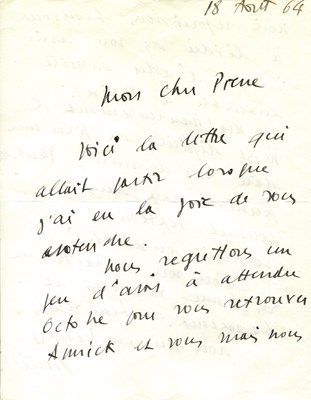 18 Août 64
Mon cher Pierre
Voici la lettre qui
allait partir lorsque
j'ai eu la joie de vous
entendre.
Nous regrettons un
peu d'avoir à attendre
Octobre pour vous retrouver
Annick et vous mais nous